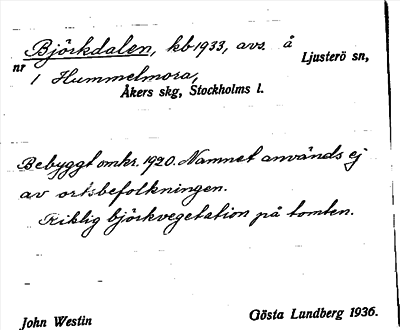 Björkdalen, kb 1933, avs. å Ljusterö sn,
nr 1 Hummelmora,
Åkers skg, Stockholms l.
Bebyggt omkr. 1920. Namnet används ej
av ortsbefolkningen.
Riklig björkvegetation på tomten.
John Westin Gösta Lundberg 1936.